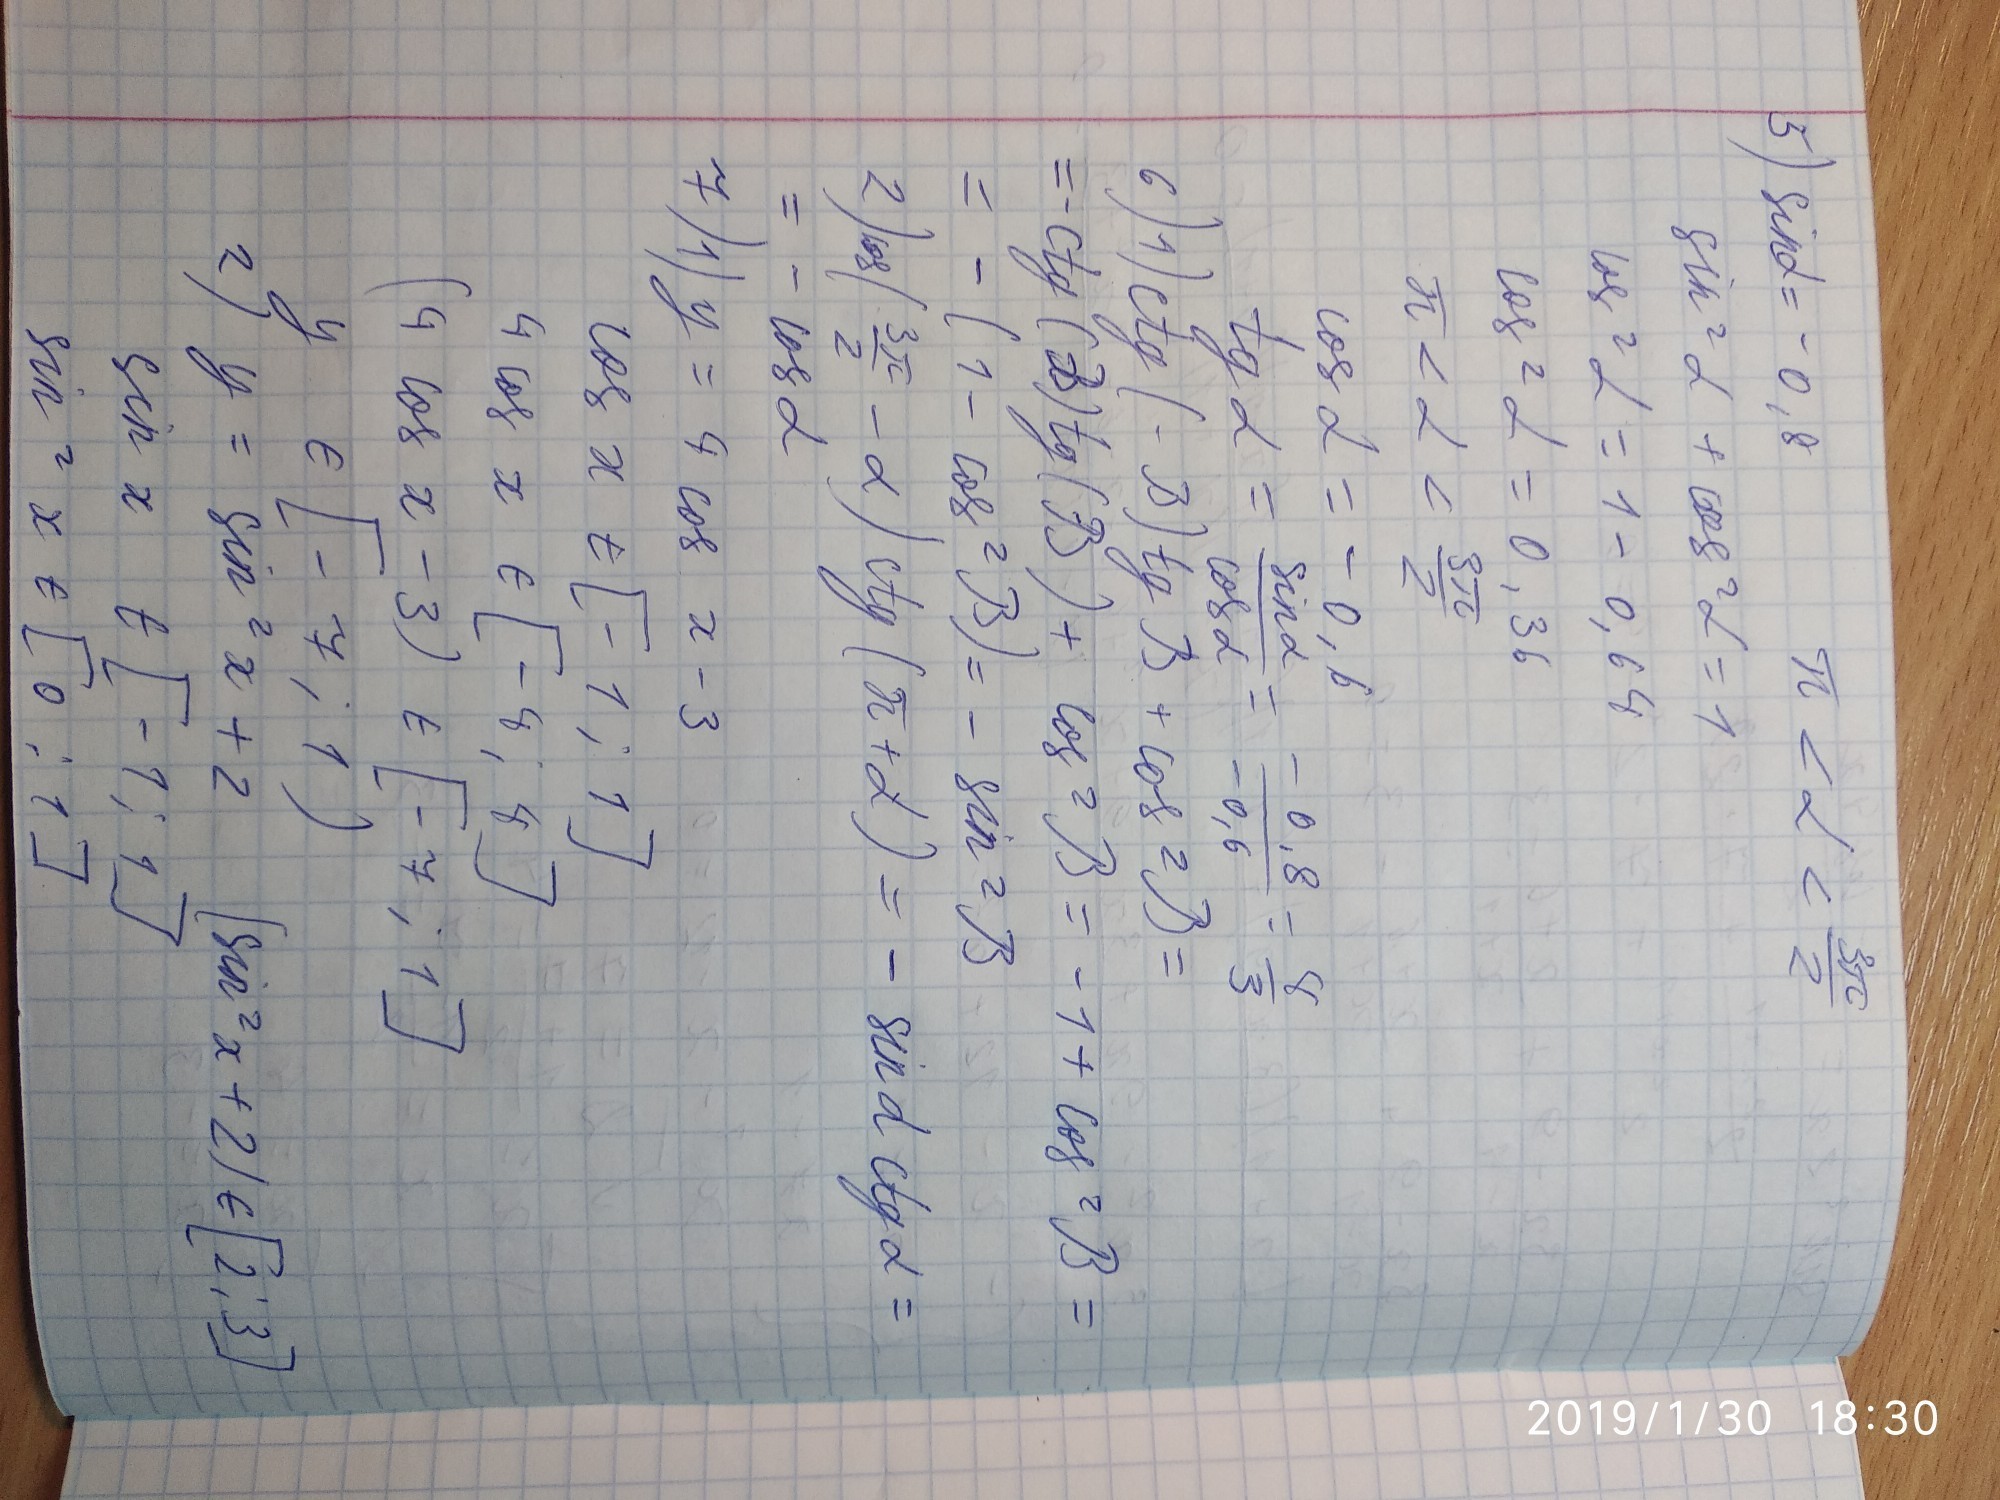 5) sin α = -0,8    π < α < 3π/2
sin² α + cos² α = 1
cos² α = 1 - 0,64
cos² α = 0,36
π < α < 3π/2
cos α = -0,6
tg α = sin α / cos α = -0,8 / -0,6 = 4/3
6) 1) ctg (-β) tg β + cos² β =
= -ctg (β) tg (β) + cos² β = -1 + cos² β =
= -(1 - cos² β) = -sin² β
2) cos (3π/2 - α) ctg (π + α) = -sin α ctg α =
= -cos α
7) 1) y = 4 cos x - 3
cos x ∈ [-1; 1]
4 cos x ∈ [-4; 4]
(4 cos x - 3) ∈ [-7; 1]
y ∈ [-7; 1)
2) y = sin² x + 2    (sin² x + 2) ∈ [2; 3]
sin x ∈ [-1; 1]
sin² x ∈ [0; 1]
2019/1/30 18:30